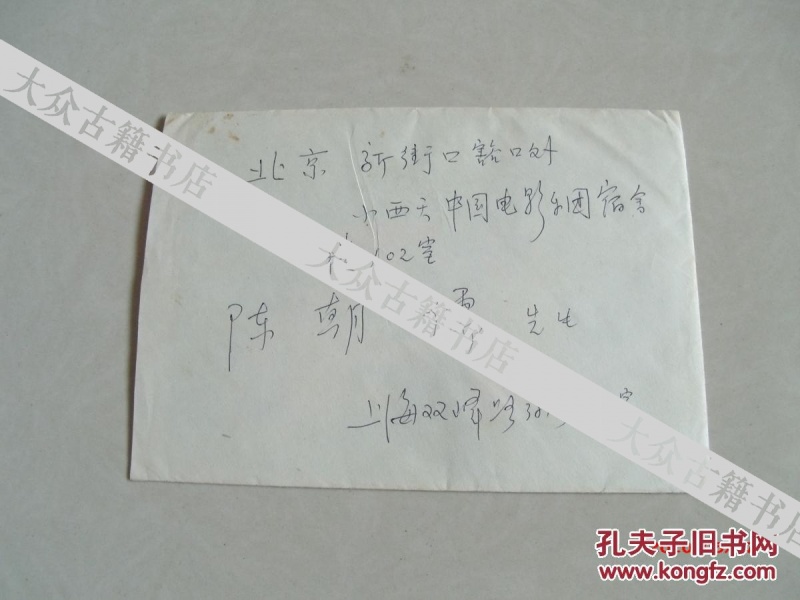 北京 新街口豁口外
小西天中国电影乐团宿舍
102室
陈朝 先生
上海双峰路
大众古籍书店
大众古籍书店
大众古籍书店
孔夫子旧书网
www.kongfz.com